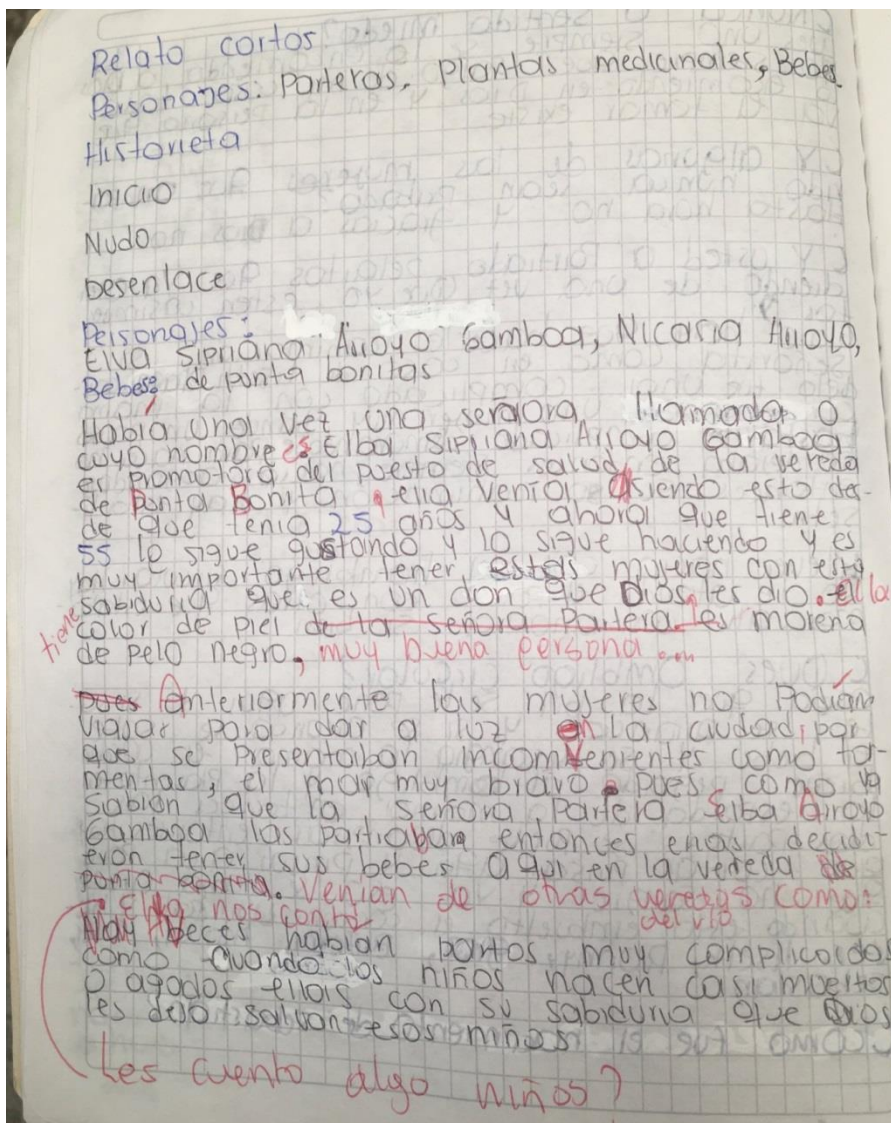 Relato cortos
Personajes: Parteras, Plantas medicinales, Bebes.
Historieta
Inicio
Nudo
Desenlace
Personajes:
Elva Sipriana Arroyo Gamboa, Nicasia Arroyo,
Bebes: de punta bonitas
Había una vez una señora, llamada o
cuyo nombre es Elba Sipriana Arroyo Gamboa
es promotora del puesto de salud, de la vereda
de Punta Bonita, ella venía asiendo esto des-
de que tenia 25 años y ahora que tiene
55 le sigue gustando y lo sigue haciendo y es
muy importante tener estas mujeres con esta
sabiduria que es un don que Dios les dio. ella
tiene color de piel de la señora Partera es morena
de pelo negro, muy buena persona...
pues Anteriormente las mujeres no Podían
viajar para dar a luz en la ciudad, por
que se presentaban incomvenientes como tor-
mentas, el mar muy bravo. pues como ya
sabian que la señora Partera Elba Arroyo
Gamboa las partiaban entonces ellas decidi-
eron tener sus bebes aqui en la vereda de
Punta bonita. Venian de otras veredas como:
Ella nos contó del rio
Hay beces habian partos muy complicados
como cuando los niños nacen casi muertos
o agados ellas con su sabiduria que Dios
les dejo salvan esos niños
Les cuento algo niños?